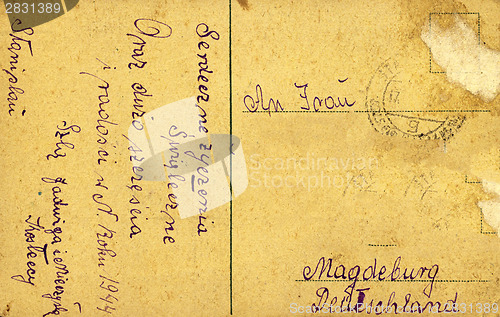 Serdeczne życzenia
Świąteczne
Oraz dużo szczęścia
i radości w N. Roku 1944
Szlą Jadwiga i
Stanisław
An Frau
Magdeburg
Deutschland